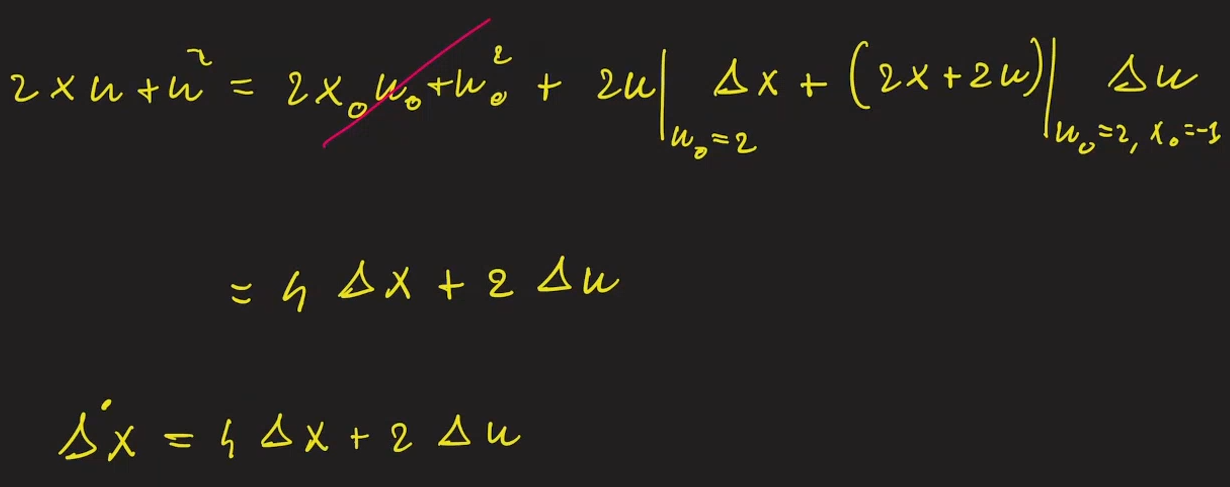 2xu+u² = 2x₀u₀+u₀² + 2u|_{u₀=2} Δx + (2x+2u)|_{u₀=2, x₀=-1} Δu
= 4 Δx + 2 Δu
Δẋ = 4 Δx + 2 Δu